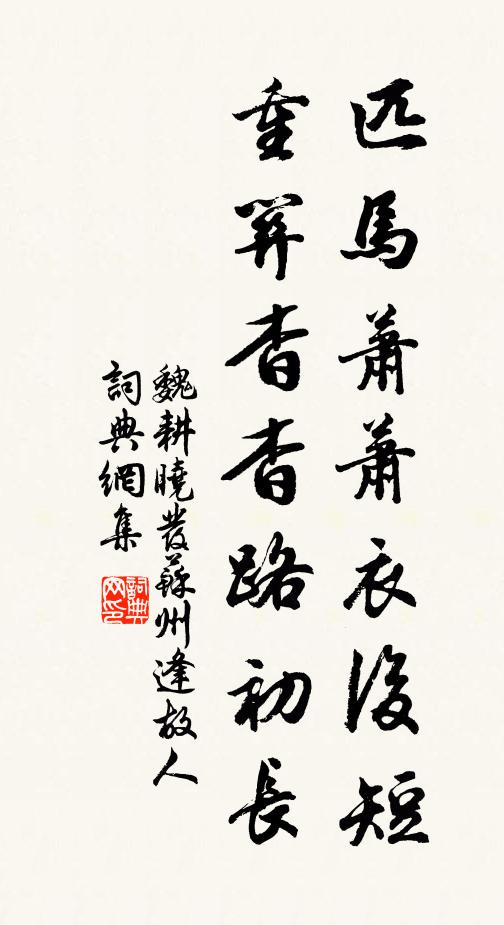 匹馬蕭蕭衣後短
重關杳杳路初長
魏耕曉發蘇州逢故人
詞典網集
詞典網印